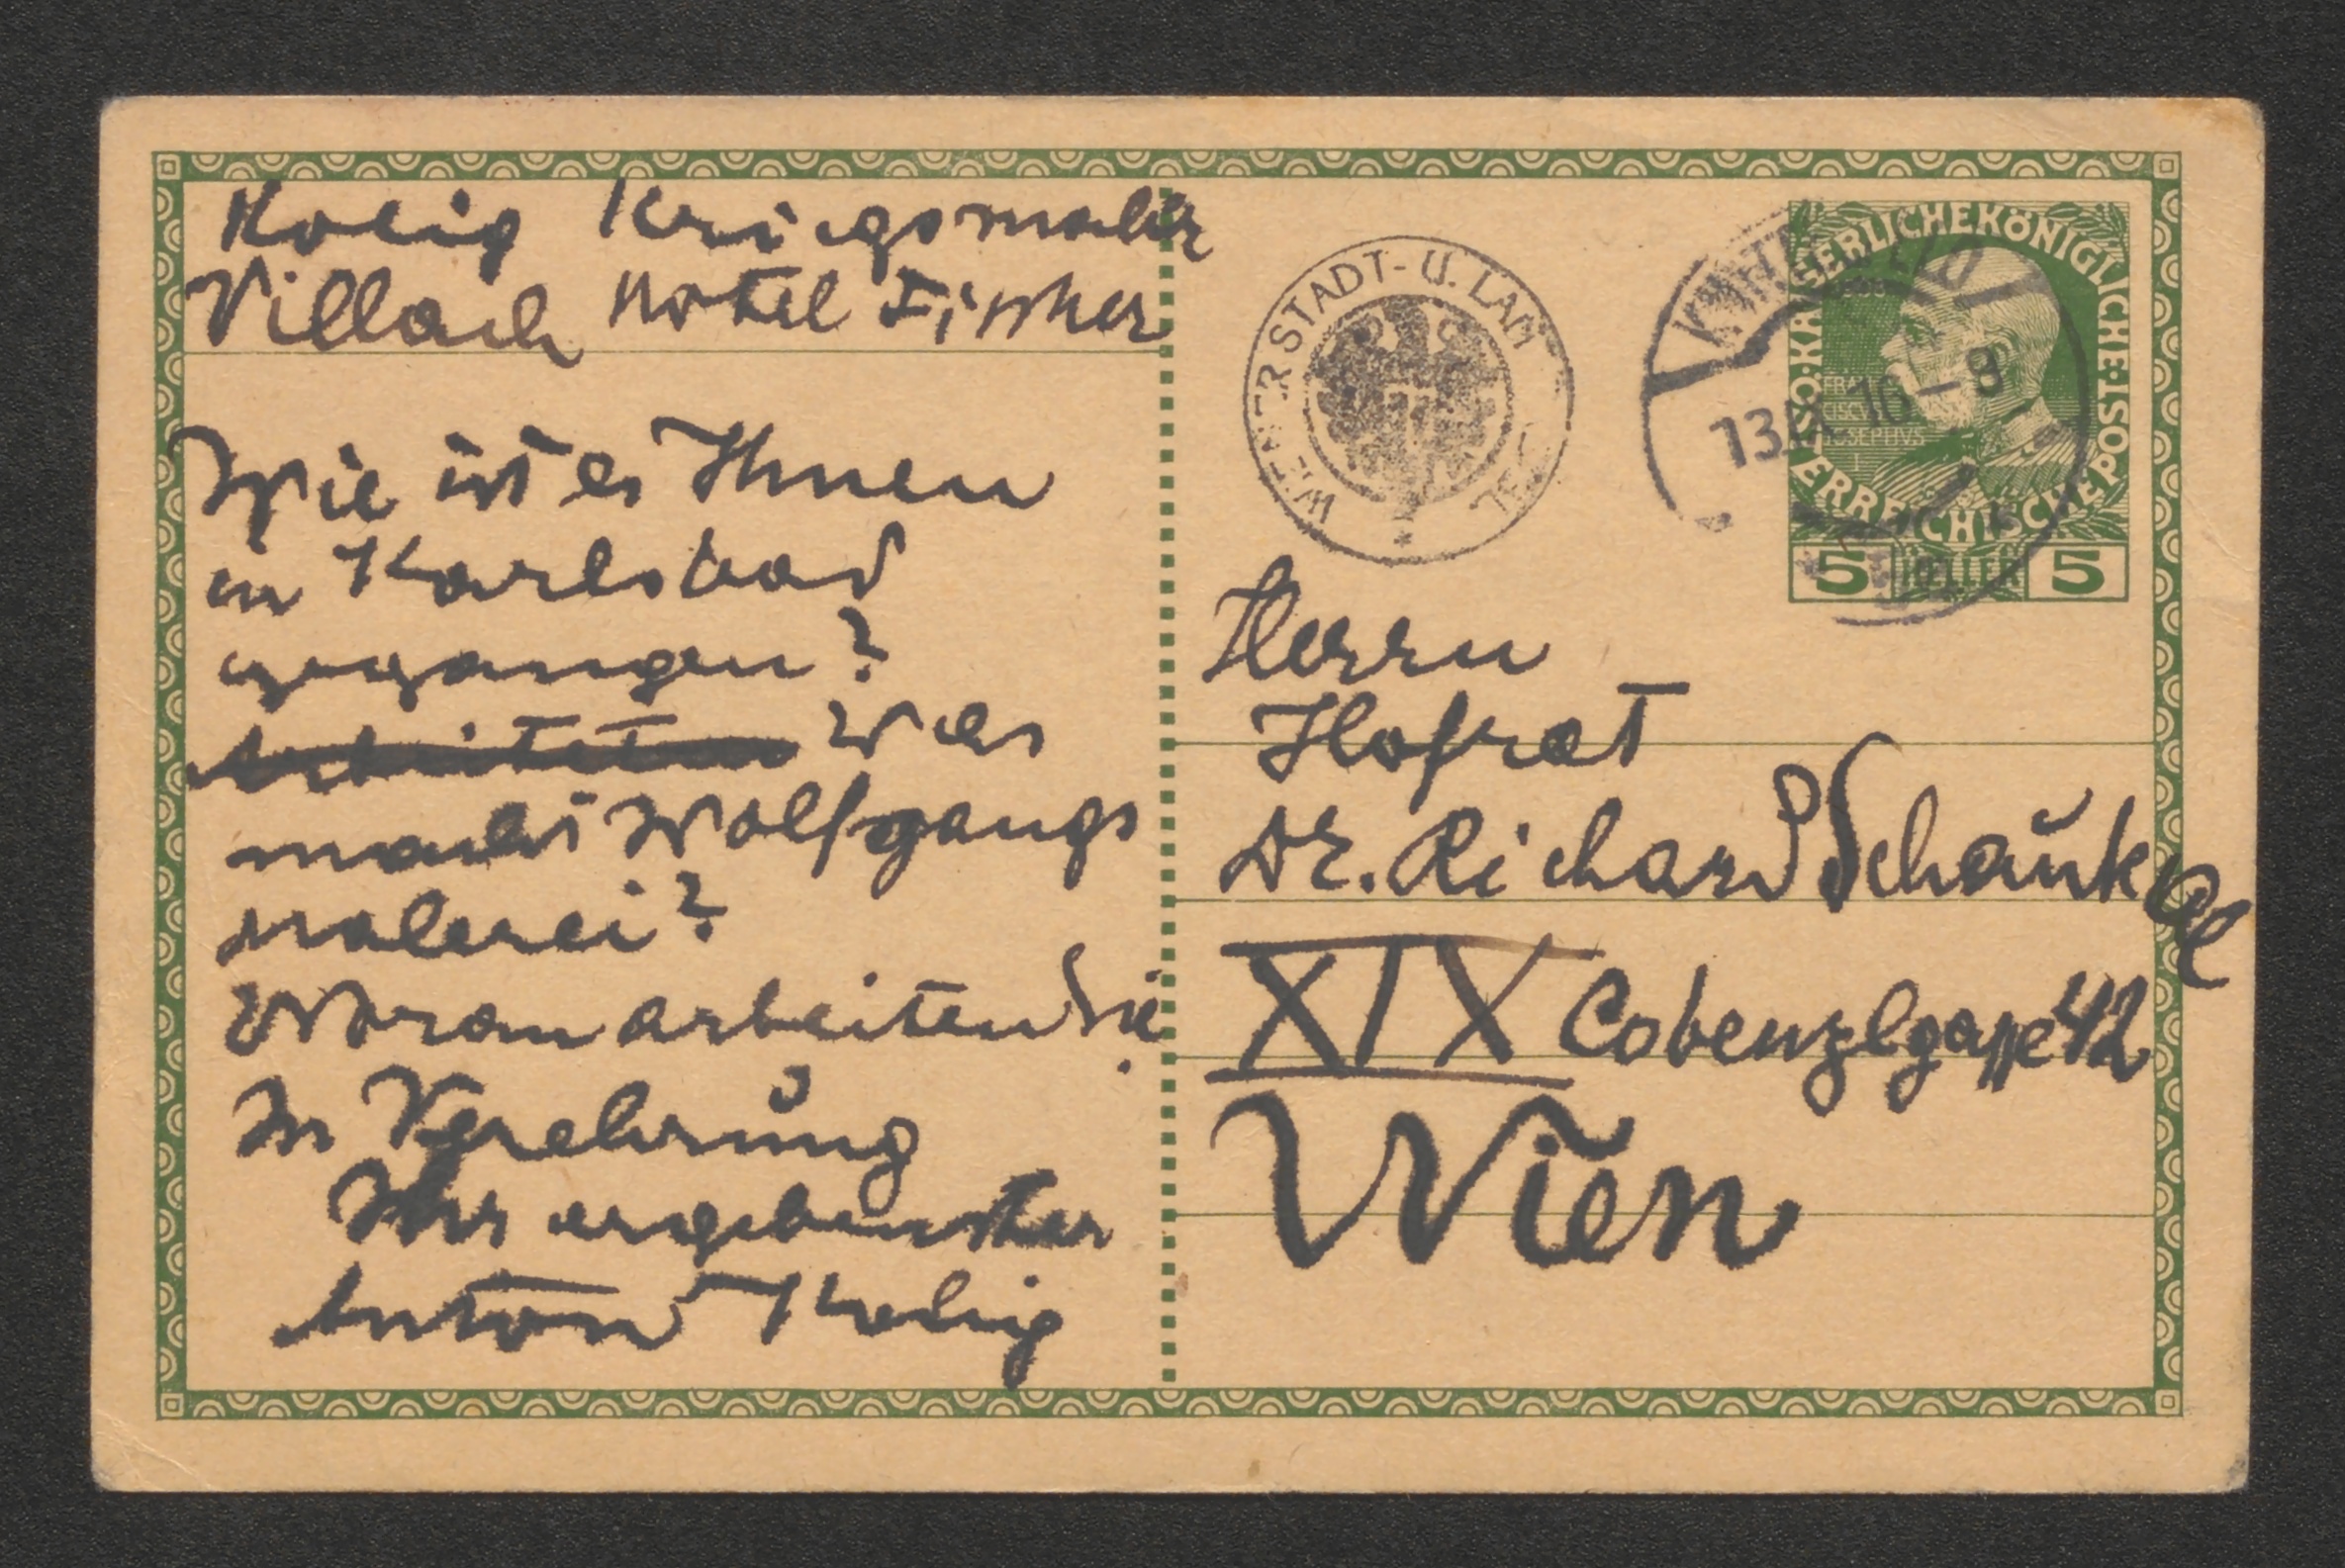 Kolig Kriegsmaler
Villach Hotel Fischer
Wie ist es Ihnen
in Karlsbad
gegangen?
Arbeiteten was
macht Wolfgangs
malerei?
Woran arbeiten Sie
?
In Verehrung
Ihr ergebenster
Anton Kolig
WIENER STADT- U.
13. 16-8
KAISERLICHE KÖNIGLICHE
ÖSTERREICHISCHE POST
5 HELLER 5
Herrn
Hofrat
Dr. Richard Schaukal
XIX Cobenzlgasse 42
Wien